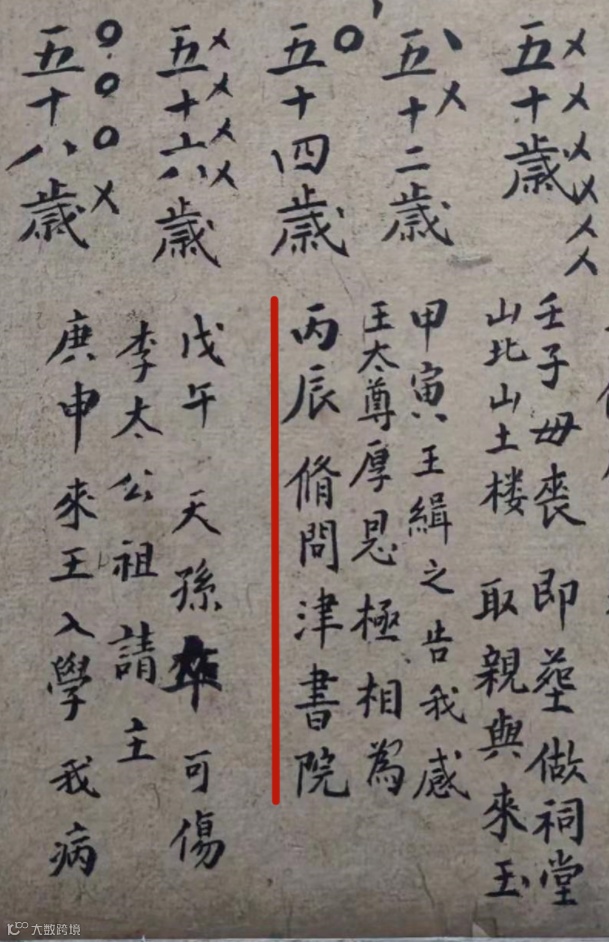 五十歲
壬子毋喪 即塟做祠堂
山北山土楼 取親與來玉
五十二歲
甲寅王緝之告我感
王太尊厚恩極相為
五十四歲
丙辰脩問津書院
五十六歲
戊午 天孫卒 可傷
李太公祖請主
五十八歲
庚申來王入學 我病
大数跨境